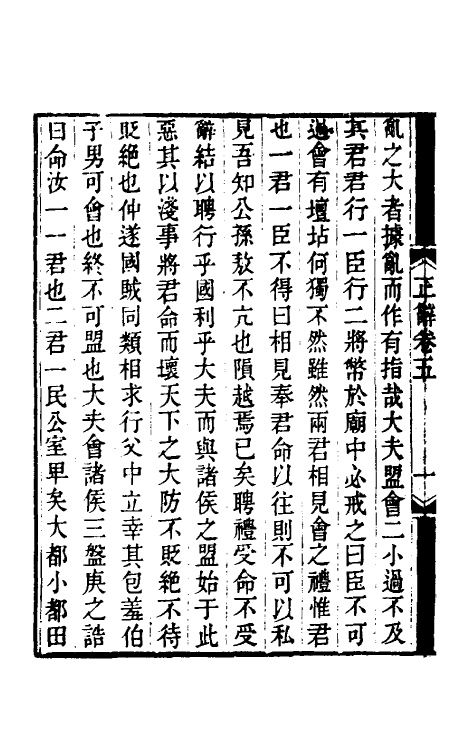 亂之大者據亂而作有指哉大夫盟會二小過不及
其君君行一臣行二將幣於廟中必戒之曰臣不可
過會有壇坫何獨不然雖然兩君相見會之禮惟君
也一君一臣不得曰相見奉君命以往則不可以私
見吾知公孫敖不亢也隕越焉已矣聘禮受命不受
辭結以聘行乎國利乎大夫而與諸侯之盟始于此
惡其以淺事將君命而壞天下之大防不貶絕不待
貶絕也仲遂國賊同類相求行父中立幸其包羞伯
子男可會也終不可盟也大夫會諸侯三盤庚之誥
曰命汝一一君也二君一民公室卑矣大都小都田
正辭卷五
一